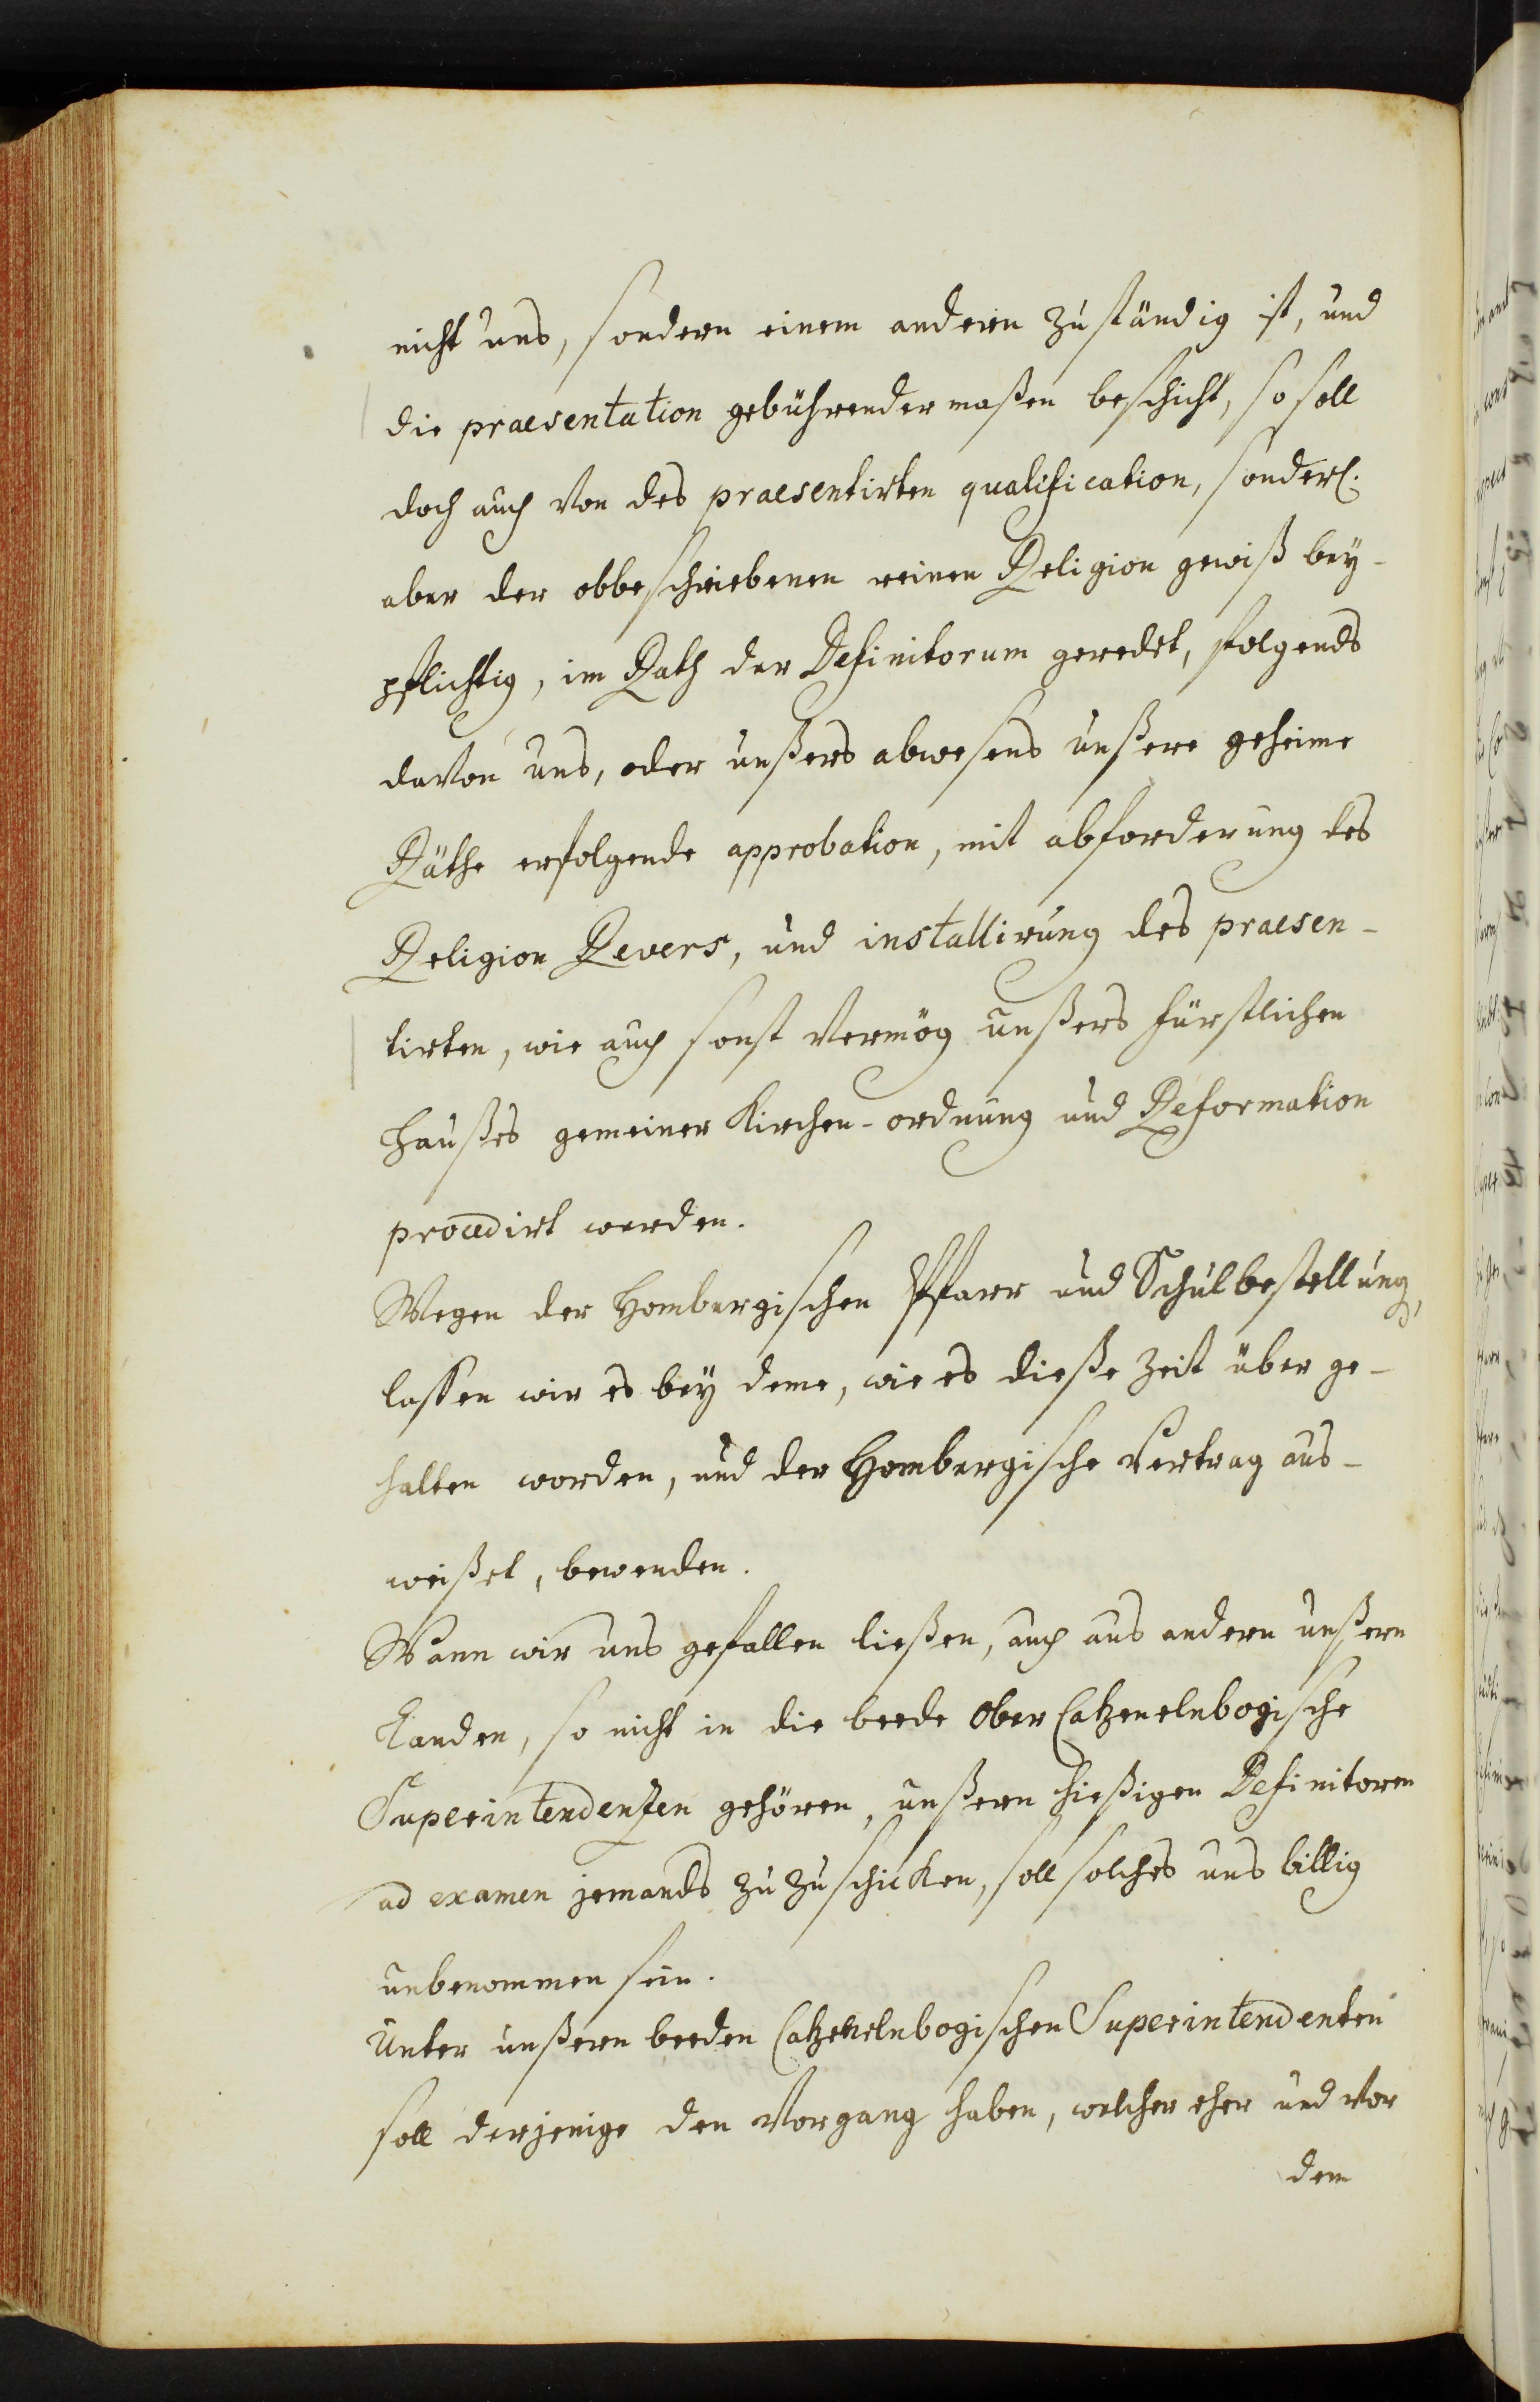 nicht uns, sondern einem andern zuständig ist, und
die praesentation gebührendermaßen beschicht, so soll
doch auch von des praesentirten qualification, sonderl.
aber der obbeschriebenen reinen Religion gewiß bey-
pflichtig, im Rath der Definitorum geredet, folgends
davon uns, oder unßers abwesens unßere geheime
Räthe erfolgende approbation, mit abforderung des
Religion Revers, und installirung des praesen-
tirten, wie auch sonst vermög unßers fürstlichen
Haußes gemeiner Kirchen-ordnung und Reformation
procedirt werden.
Wegen der Hombergischen Pfarr und Schulbestellung,
lassen wir es bey deme, wie es dieße Zeit über ge-
halten worden, und der Hombergische Vertrag aus-
weißet, bewenden.
Wann wir uns gefallen ließen, auch aus andern unßern
Landen, so nicht in die beede Ober Catzenelnbogische
Superintendenzen gehören, unßern hießigen Definitoren
ad examen jemands zuzuschicken, soll solches uns billig
unbenommen sein.
Unter unßern beeden Catzenelnbogischen Superintendenten
soll derjenige den Vorgang haben, welcher eher und vor
dem